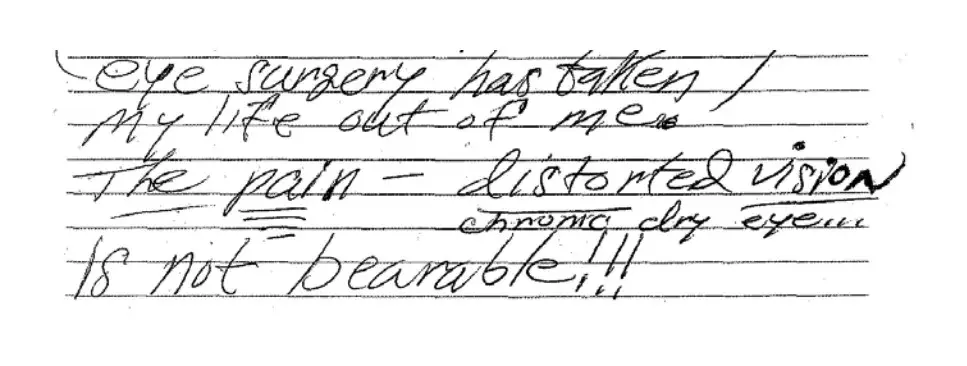 eye surgery has taken
my life out of me..
The pain – distorted vision
chronic dry eye....
Is not bearable!!!